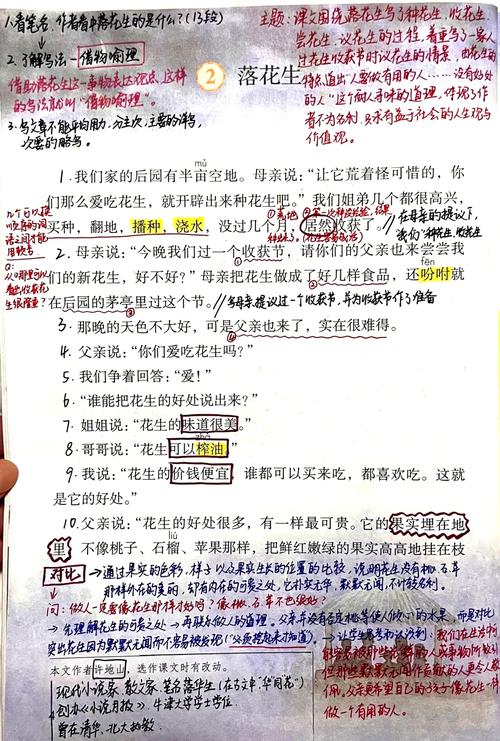 1.看笔名,作者看中落花生的是什么?(13段)
2.了解写法—借物喻理
借助落花生这一事物表达观点,这样
的写法就叫“借物喻理”。
3.写文章不能平均用力,分主次,主要的详写,
次要的略写。
主题:课文围绕落花生写了种花生、收花生、
尝花生、议花生的过程,着重写了一家人
过花生收获节时议花生的情景,由花生的
特点道出“人要做有用的人……没有好处
的人”这个耐人寻味的道理,体现了作
者不为名利,只求有益于社会的人生观与
价值观。
2 落花生
mǔ
1.我们家的后园有半亩空地。母亲说:“让它荒着怪可惜的,你
们那么爱吃花生,就开辟出来种花生吧。”我们姐弟几个都很高兴,
买种,翻地,播种,浇水,没过几个月,居然收获了。
//在母亲的提议下,
我们“种花生、收花生
2.母亲说:“今晚我们过一个收获节,请你们的父亲也来尝尝我
fēn
们的新花生,好不好?”母亲把花生做成了好几样食品,还吩咐就
在后园的茅亭里过这个节。
//写母亲提议过一个收获节,并为收获节作了准备
3.那晚的天色不大好,可是父亲也来了,实在很难得。
4.父亲说:“你们爱吃花生吗?”
5.我们争着回答:“爱!”
6.“谁能把花生的好处说出来?”
7.姐姐说:“花生的味道很美。”
zhà
8.哥哥说:“花生可以榨油。”
9.我说:“花生的价钱便宜,谁都可以买来吃,都喜欢吃。这就
是它的好处。”
10.父亲说:“花生的好处很多,有一样最可贵。它的果实埋在地
liú
里,不像桃子、石榴、苹果那样,把鲜红嫩绿的果实高高地挂在枝
对比→通过果实的色彩,样子以及果实生长的位置的比较,说明花生没有桃、石、苹
那样外在的美,却有内在的可贵之处,它朴实无华,默默无闻,不计较名利。
问:做人一定要像花生那样才好吗?像桃、石、苹不也很好?
→先理解花生的可贵之处→再联系做人的道理。父亲并没有否定桃等使人倾心的水果,而是对比
突出花生因为默默无闻而不容易被发现(“必须挖起来才知道)。
本文作者许地山,选作课文时有改动。
现代小说家、散文家 笔名落华生(在古文中“华”同“花”)
创办《小说月报》 牛津大学学士学位
曾在清华、北大执教